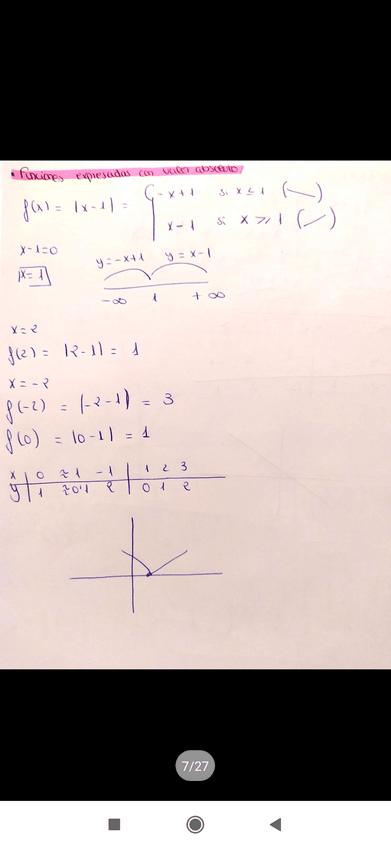 • Funciones expresadas con valor absoluto
f(x) = |x-1| = { -x+1 si x ≤ 1 ( )
x-1 si x ≥ 1 ( )
x-1=0
x=1
y=-x+1 y=x-1
-∞ 1 +∞
x=2
f(2) = |2-1| = 1
x=-2
f(-2) = |-2-1| = 3
f(0) = |0-1| = 1
x | 0 ≈1 -1 | 1 2 3
y | 1 ≈0'1 2 | 0 1 2
7/27